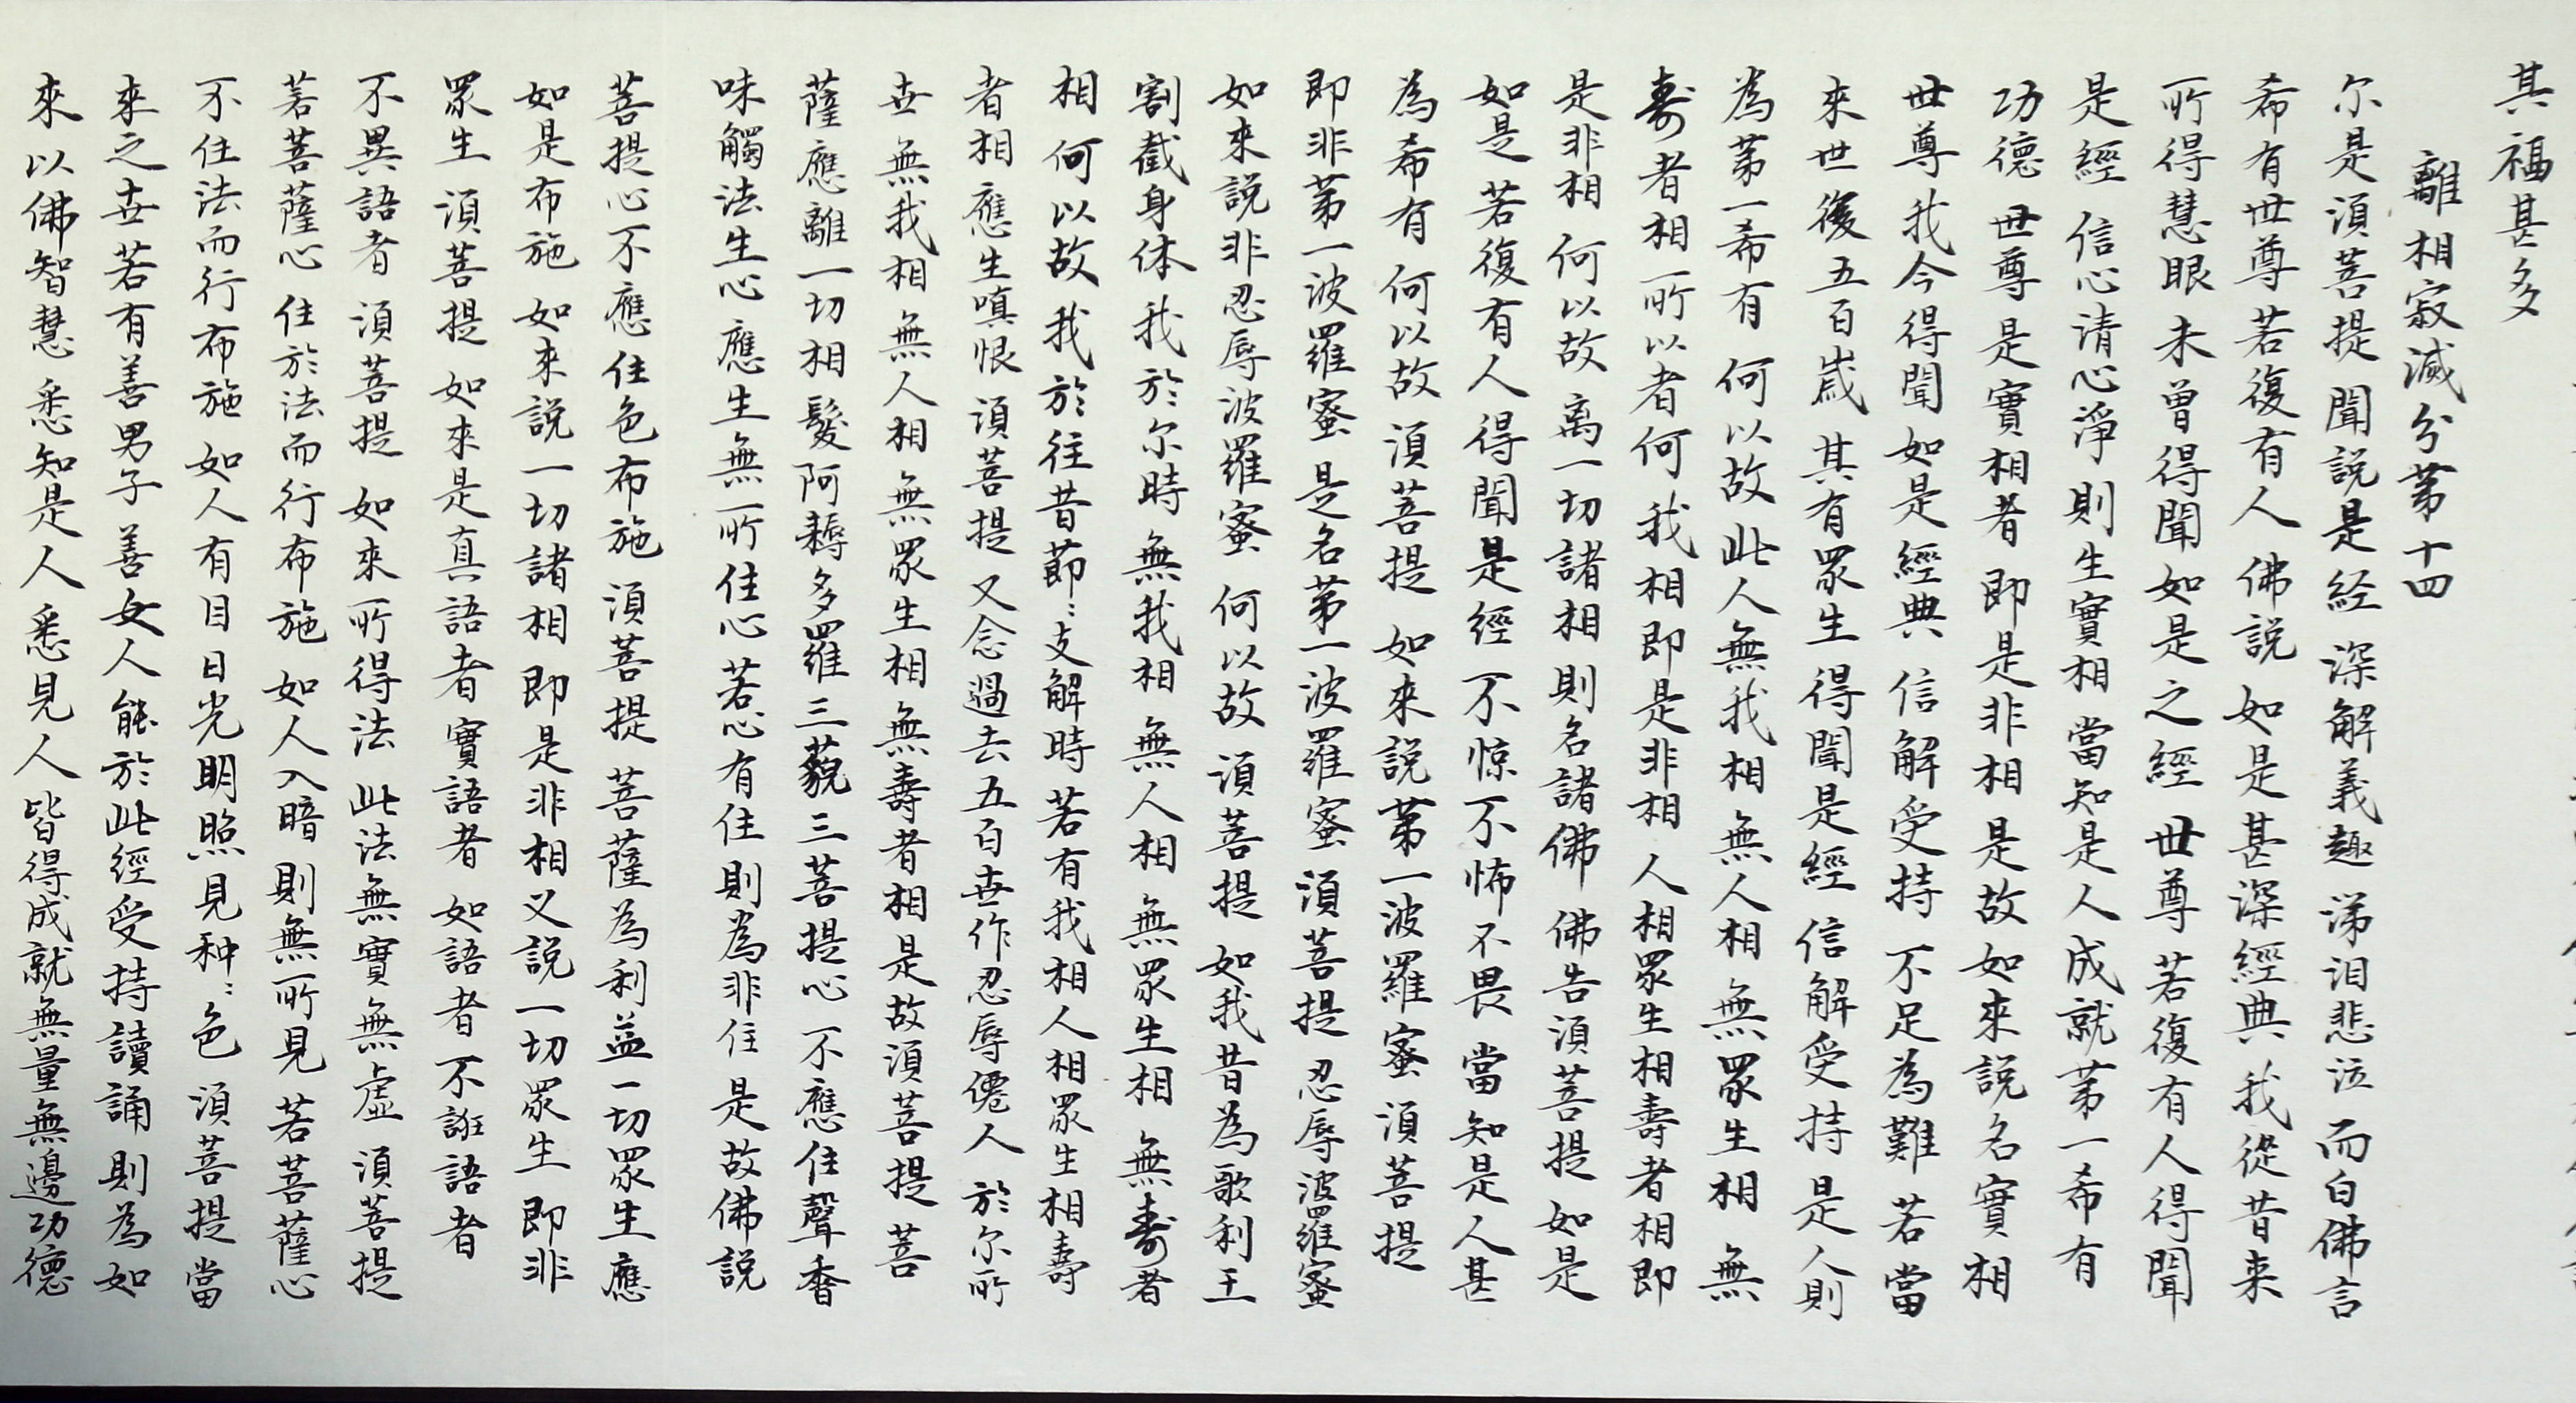 其福甚多
離相寂滅分第十四
尔是須菩提 聞説是経 深解義趣 涕泪悲泣 而白佛言
希有世尊 若復有人 佛説 如是甚深經典 我從昔来
所得慧眼 未曾得聞 如是之經 世尊 若復有人得聞
是經 信心清心淨 則生實相 當知是人 成就第一希有
功德 世尊 是實相者 即是非相 是故如来説名實相
世尊 我今得聞 如是經典 信解受持 不足為難 若當
來世後五百歲 其有眾生 得聞是經 信解受持 是人則
為第一希有 何以故 此人無我相 無人相 無眾生相 無
壽者相 所以者何 我相即是非相 人相眾生相壽者相即
是非相 何以故 离一切諸相 則名諸佛 佛告須菩提 如是
如是 若復有人 得聞是經 不惊不怖不畏 當知是人甚
為希有 何以故 須菩提 如來説第一波羅蜜 須菩提
即非第一波羅蜜 是名第一波羅蜜 須菩提 忍辱波羅蜜
如來説非忍辱波羅蜜 何以故 須菩提 如我昔為歌利王
割截身体 我於尔時 無我相 無人相 無眾生相 無壽者
相 何以故 我於往昔節〻支解時 若有我相人相眾生相壽
者相 應生嗔恨 須菩提 又念過去五百世 作忍辱僊人 於尔所
世 無我相 無人相 無眾生相 無壽者相 是故須菩提 菩
薩應離一切相 髮阿耨多羅三藐三菩提心 不應住聲香
味觸法生心 應生無所住心 若心有住 則為非住 是故佛説
菩提心不應住色布施 須菩提 菩薩為利益一切眾生 應
如是布施 如來説一切諸相 即是非相 又説一切眾生 即非
眾生 須菩提 如來是真語者 實語者 如語者 不誑語者
不異語者 須菩提 如來所得法 此法無實無虛 須菩提
若菩薩心 住於法而行布施 如人入暗 則無所見 若菩薩心
不住法而行布施 如人有目 日光明照見种〻色 須菩提 當
来之世 若有善男子善女人 能於此經受持讀誦 則為如
來 以佛智慧 悉知是人 悉見人 皆得成就無量無邊功德